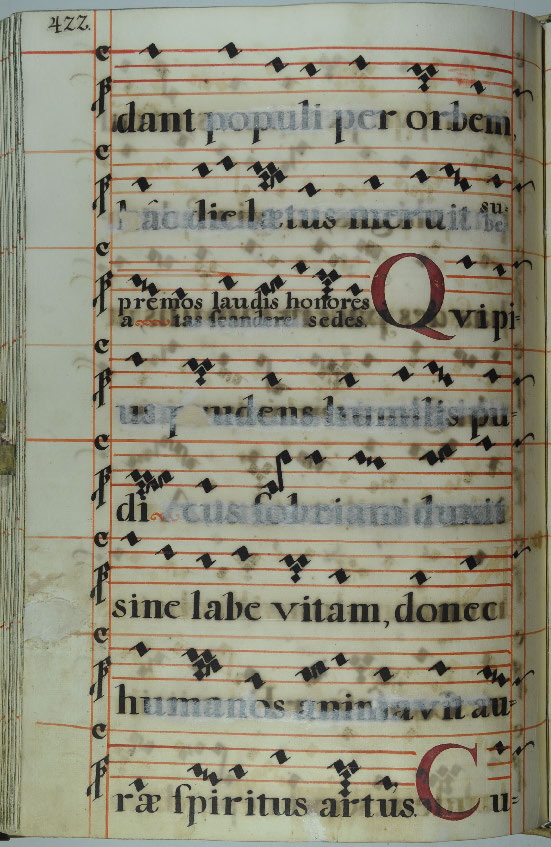 422.
dant populi per orbem,
hác die lætus meruit su-
be
premos laudis honores
a tas scandere sedes.
Qvi pi-
us prudens humilis pu-
dicus sobriam duxit
sine labe vitam, donec
humanos animavit au-
ræ spiritus artus. Cu-